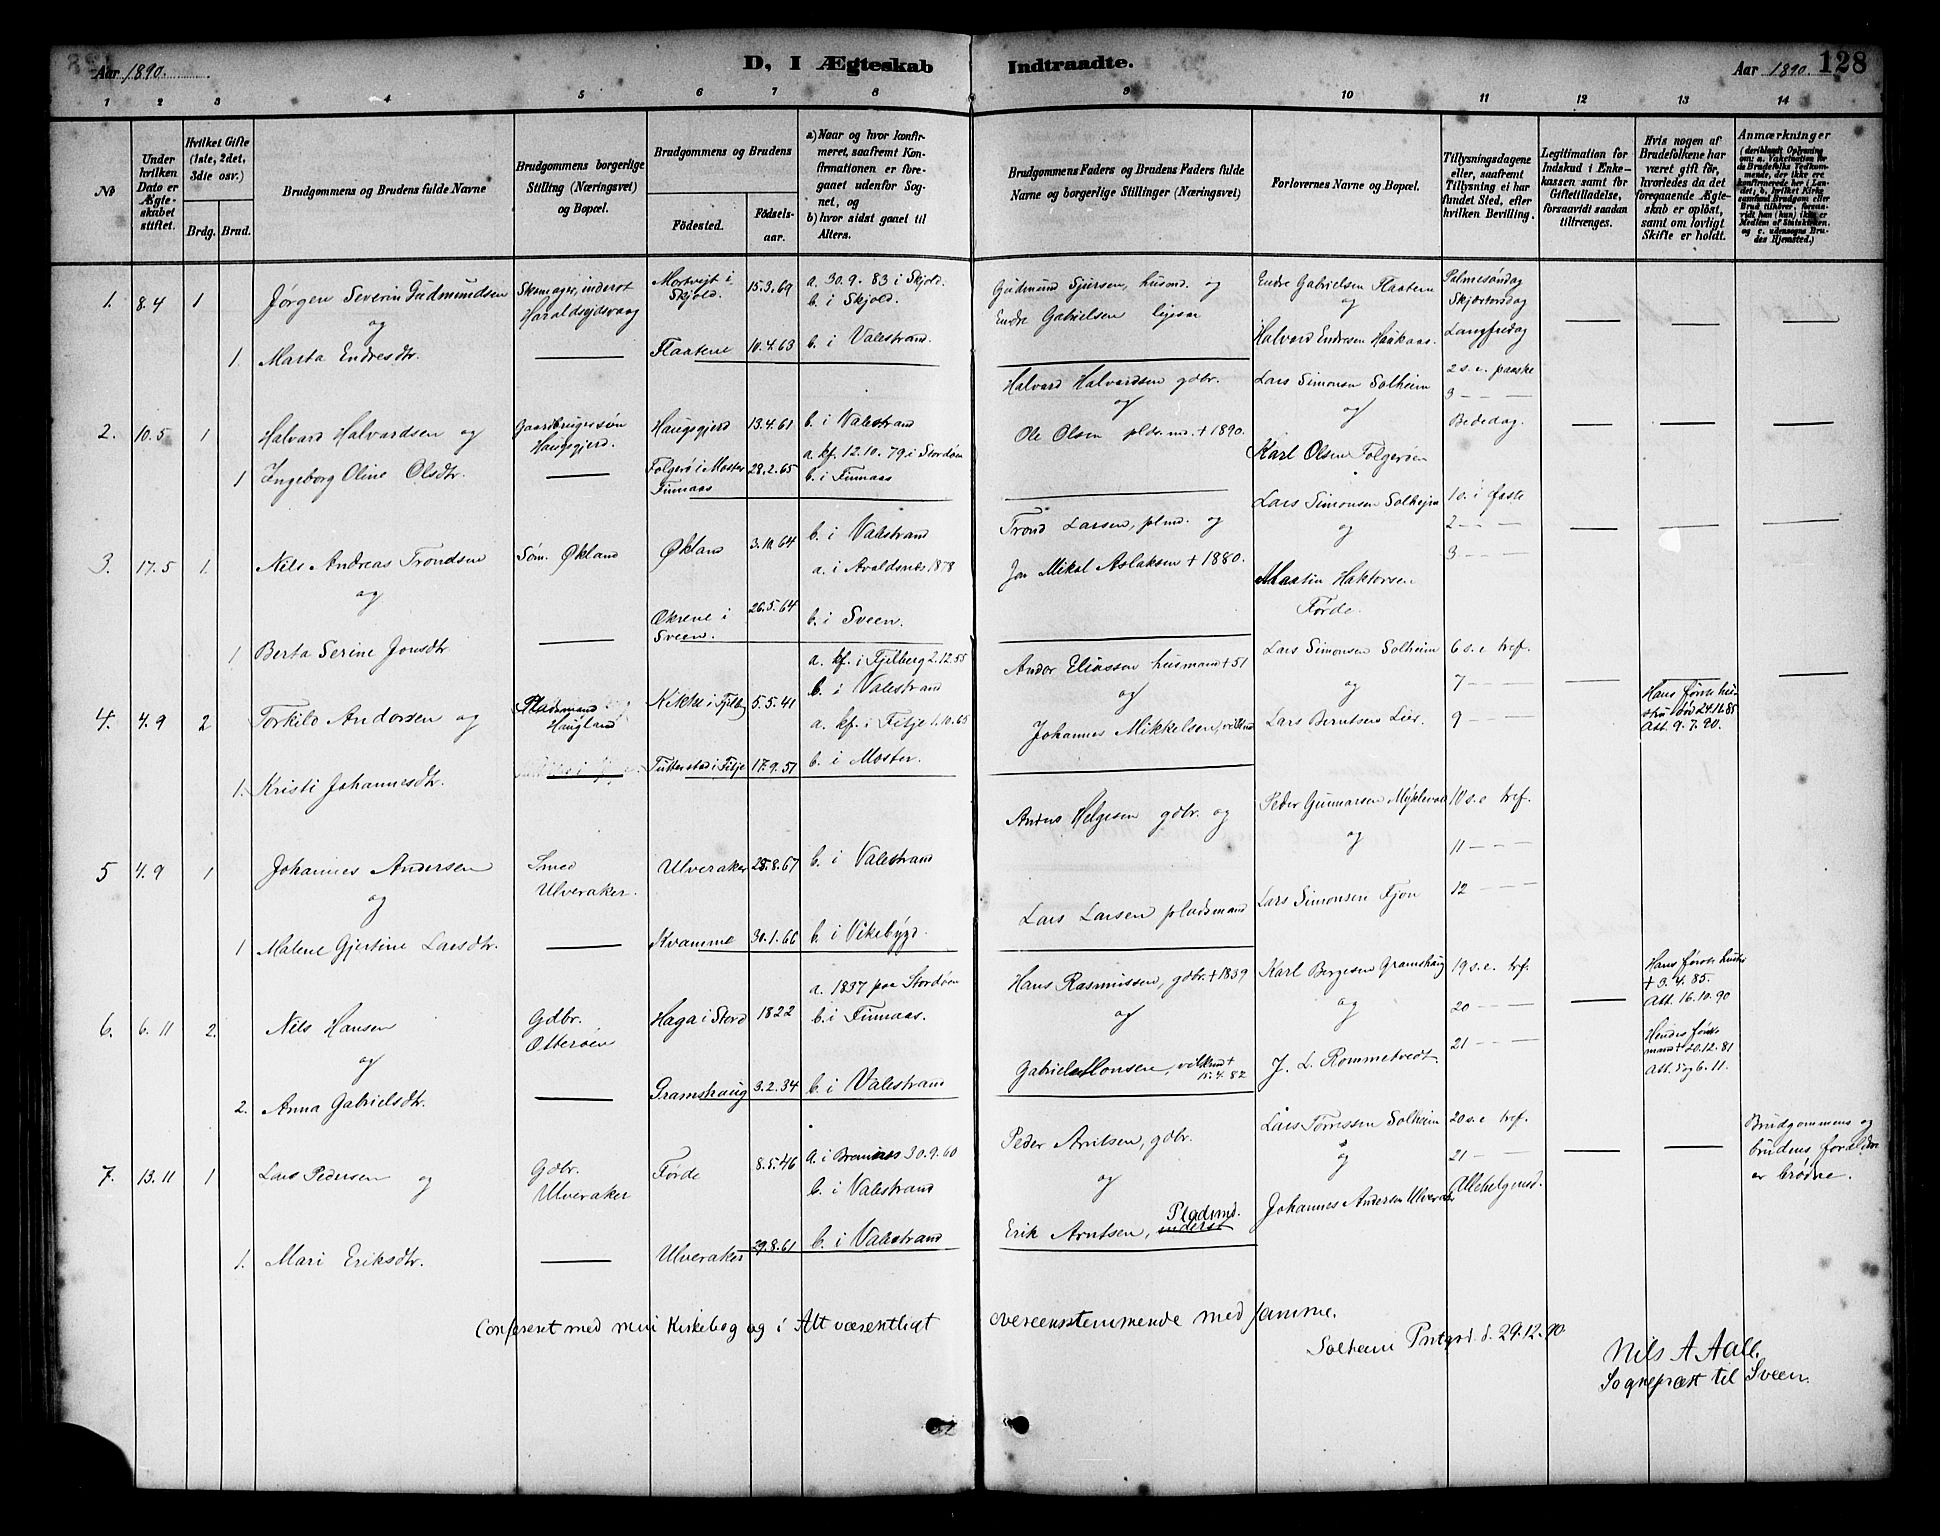 Aar 1890.
D, I Ægteskab Indtraadte.
Aar 1890. 128
1 2 3 4 5 6 7 8 9 10 11 12 13 14
No
Under hvilken Dato er Ægte-skabet stiftet.
Hvilket Gifte (1ste, 2det, 3die osv.)
Brdg. Brud.
Brudgommens og Brudens fulde Navne
Brudgommens borgerlige Stilling (Næringsvei) og Bopæl.
Brudgommens og Brudens
Fødested.
Fødsels-aar.
a) Naar og hvor konfir-meret, saafremt Kon-firmationen er fore-gaaet udenfor Sog-net, og
b) hvor sidst gaaet til Alters.
Brudgommens Faders og Brudens Faders fulde Navne og borgerlige Stillinger (Næringsvei)
Forlovernes Navne og Bopæl.
Tillysningsdagene eller, saafremt Tillysning ei har fundet Sted, efter hvilken Bevilling.
Legitimation for Indskud i Enke-kassen samt for Giftetilladelse, forsaavidt saadan tiltrænges.
Hvis nogen af Brudefolkene har været gift før, hvorledes da det foregaaende Ægte-skab er opløst, samt om lovligt Skifte er holdt.
Anmærkninger
1. 8.4 1 Jørgen Severin Gudmundsen Skomager, inderst Haraldseidsvaag Mortveit i Skjold. 15.3.69 a. 30.9.83 i Skjold. b. i Skjold. Gudmund Sjursen, husmd. og Endre Gabrielsen Flaatene og Palmesøndag Skjærtorsdag
og
1 Marta Endresdtr. Flaatene 10.4.63 b. i Valestrand. Endre Gabrielsen Halvard Endresen Haukaas. Langfredag
2. 10.5 1 Halvard Halvardsen og Gaardbrugersøn Haugsgjerd. Haugsgjerd 13.4.61 b. i Valestrand Halvard Halvardsen gdbr. og Lars Simonsen Solheim og 2 s.e. paaske 3 - - Bededag.
1 Ingeborg Oline Olsdtr. Folgerø i Moster Finnaas 28.2.65 a. kf. 12.10.79 i Stordøen b. i Finnaas Ole Olsen pldsmd. + 1890. Karl Olsen Folgerøen
3. 17.5 1. Nils Andreas Trondsen Søm. Økland Økland 3.10.64 b. i Valestrand Trond Larsen, plmd. og Lars Simonsen Solheim og 1 s. i faste 2 - - 3 - -
og
1 Berta Serine Jonsdtr. Økrene i Sveen. 26.5.64 a. i Avaldsnes 1878 b. i Sveen. Jon Mikal Aslaksen + 1880. Martin Haktorsen Førde.
4. 4.9 2 Torkild Andorsen og Pladsmand Haugland i Fjelberg 5.5.41 a. kf. i Fjelberg 2.12.55 b. i Valestrand Andor Eliassen husmand + 51 og Lars Simonsen Solheim og 6 s.e. tref. 7 - - 9 - - Hans første hu-stru død 24.12.85 Att. 9.7.90.
1. Kristi Johannesdtr. i Fitje 17.9.51 a. kf. i Fitje 1.10.65 b. i Moster. Johannes Mikkelsen, Lars Berntsen Lier.
5 4.9 1 Johannes Andersen Smed Ulveraker. Ulveraker 25.8.67 b. i Valestrand Anders Helgesen gdbr. og Peder Gunnarsen Myklevold og 10 s.e. tref. 11 - - 12 - -
og
1 Malene Gjertine Larsdtr. Kvamme 30.1.66 b. i Vikebygd. Lars Larsen pladsmand Lars Simonsen Fjon
6. 6.11 2. Nils Hansen Gdbr. Otterøen Haga i Stord 1822 a. 1837 paa Stordøen b. i Finnaas. Hans Rasmussen, gdbr. + 1839 og Karl Børgesen Gramshaug og 19 s.e. tref. 20 - - 21 - - Hans første hustru + 3.4.85. Att. 16.10.90
og
2. Anna Gabrielsdtr. Gramshaug 3.2.34 b. i Valestrand Gabriel Monsen, + 15.4.82 J. L. Rommetvedt. Hendes første mand + 20.12.81 Att. 5 og 6.11.
7. 13.11 1 Lars Pedersen og Gdbr. Ulveraker Førde 8.5.46 a. i Bremnes 30.9.60 b. i Valestrand Peder Arntsen, gdbr. og Lars Tørressen Solheim og 20 s.e. tref. 21 - - Allehelgensd. Brudgommens og brudens forældre er brødre.
1. Mari Eriksdtr. Ulveraker 29.8.61 b. i Valestrand Erik Arntsen, inderst Pladsmd. Johannes Andersen Ulveraker
Confereret med min Kirkebog og i Alt væsentligt overeensstemmende med samme.
Solheim Prstgrd. d. 29.12.90.
Nils A Aall.
Sognepræst til Sveen.